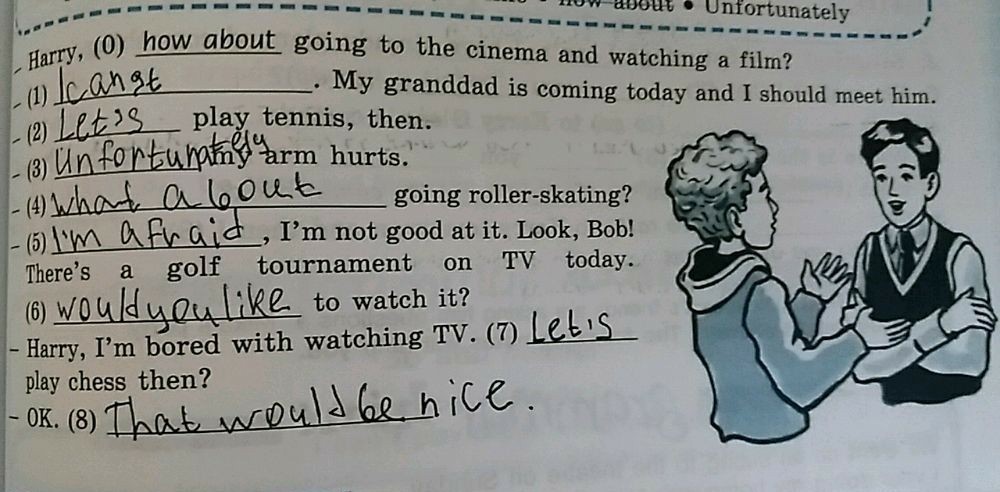 how about • Unfortunately
- Harry, (0) how about going to the cinema and watching a film?
- (1) I can't. My granddad is coming today and I should meet him.
- (2) Let's play tennis, then.
- (3) Unfortunately my arm hurts.
- (4) what about going roller-skating?
- (5) I'm afraid, I'm not good at it. Look, Bob!
There's a golf tournament on TV today.
(6) would you like to watch it?
- Harry, I'm bored with watching TV. (7) Let's
play chess then?
- OK. (8) That would be nice.